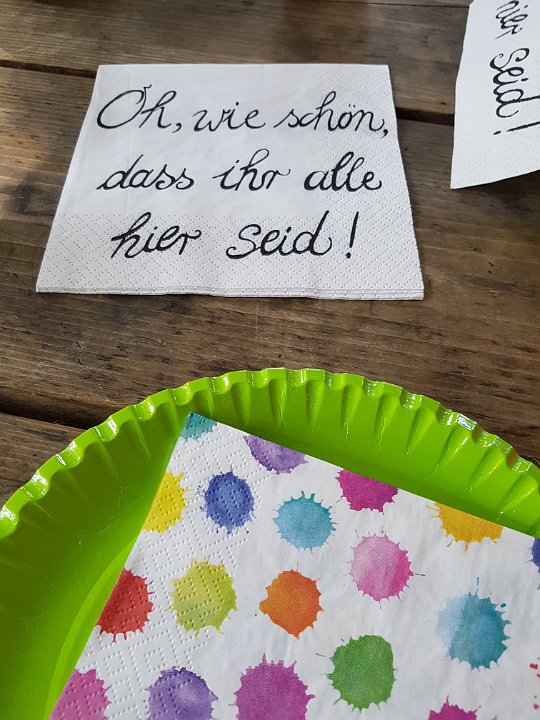 Oh, wie schön,
dass ihr alle
hier seid!
hier seid!